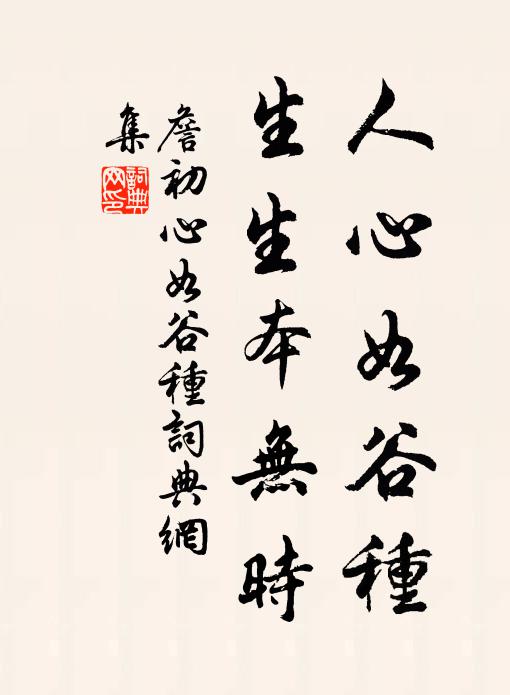 人心如谷種
生生本無時
詹初心如谷種詞典網
集
詞典網印